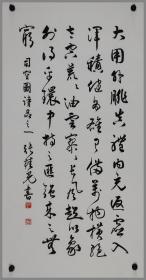 大用外腓真體内充返虚入
渾積健為雄具備萬物橫絶
太空荒荒油雲寥寥長風超以象
外得其環中持之匪強來之無
窮 司空圖詩品之一 張